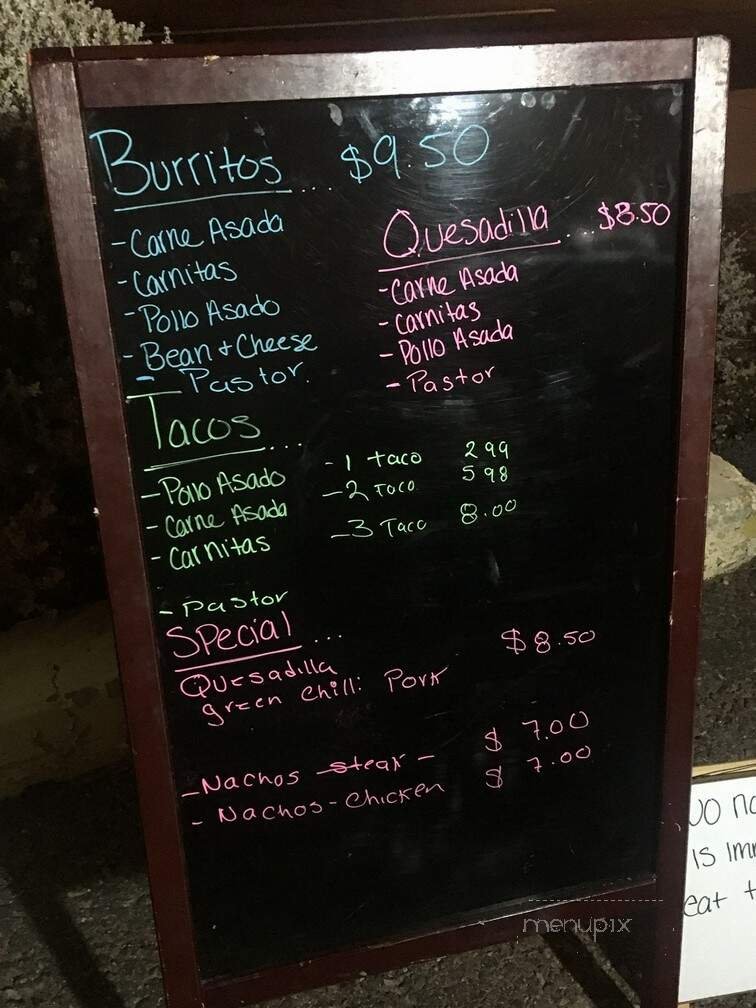 Burritos ... $9.50
- Carne Asada
- Carnitas
- Pollo Asado
- Bean + Cheese
- Pastor.
Quesadilla ... $8.50
- Carne Asada
- Carnitas
- Pollo Asada
- Pastor
Tacos ...
- Pollo Asado
- Carne Asada
- Carnitas
- Pastor
- 1 taco 299
- 2 Taco 598
- 3 Taco 8.00
Special ...
Quesadilla $8.50
green chili: Pork
- Nachos - steak - $ 7.00
- Nachos - Chicken $ 7.00
menupix
eat